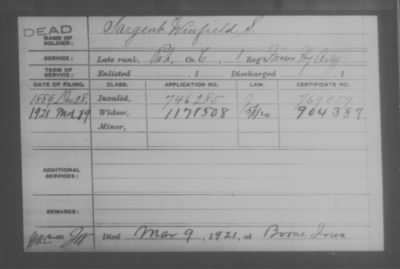 DEAD
NAME OF SOLDIER: Sargent Winfield S.
SERVICE: Late rank, Co. C, 1 Reg't Hy Arty
TERM OF SERVICE: Enlisted , 1 Discharged , 1
DATE OF FILING. CLASS. APPLICATION NO. LAW. CERTIFICATE NO.
1889 Dec 28 Invalid, 746285
1921 Mar 29 Widow, 1171508 904387
Minor,
ADDITIONAL SERVICES:
REMARKS:
Died Mar 9, 1921, at Boone Iowa